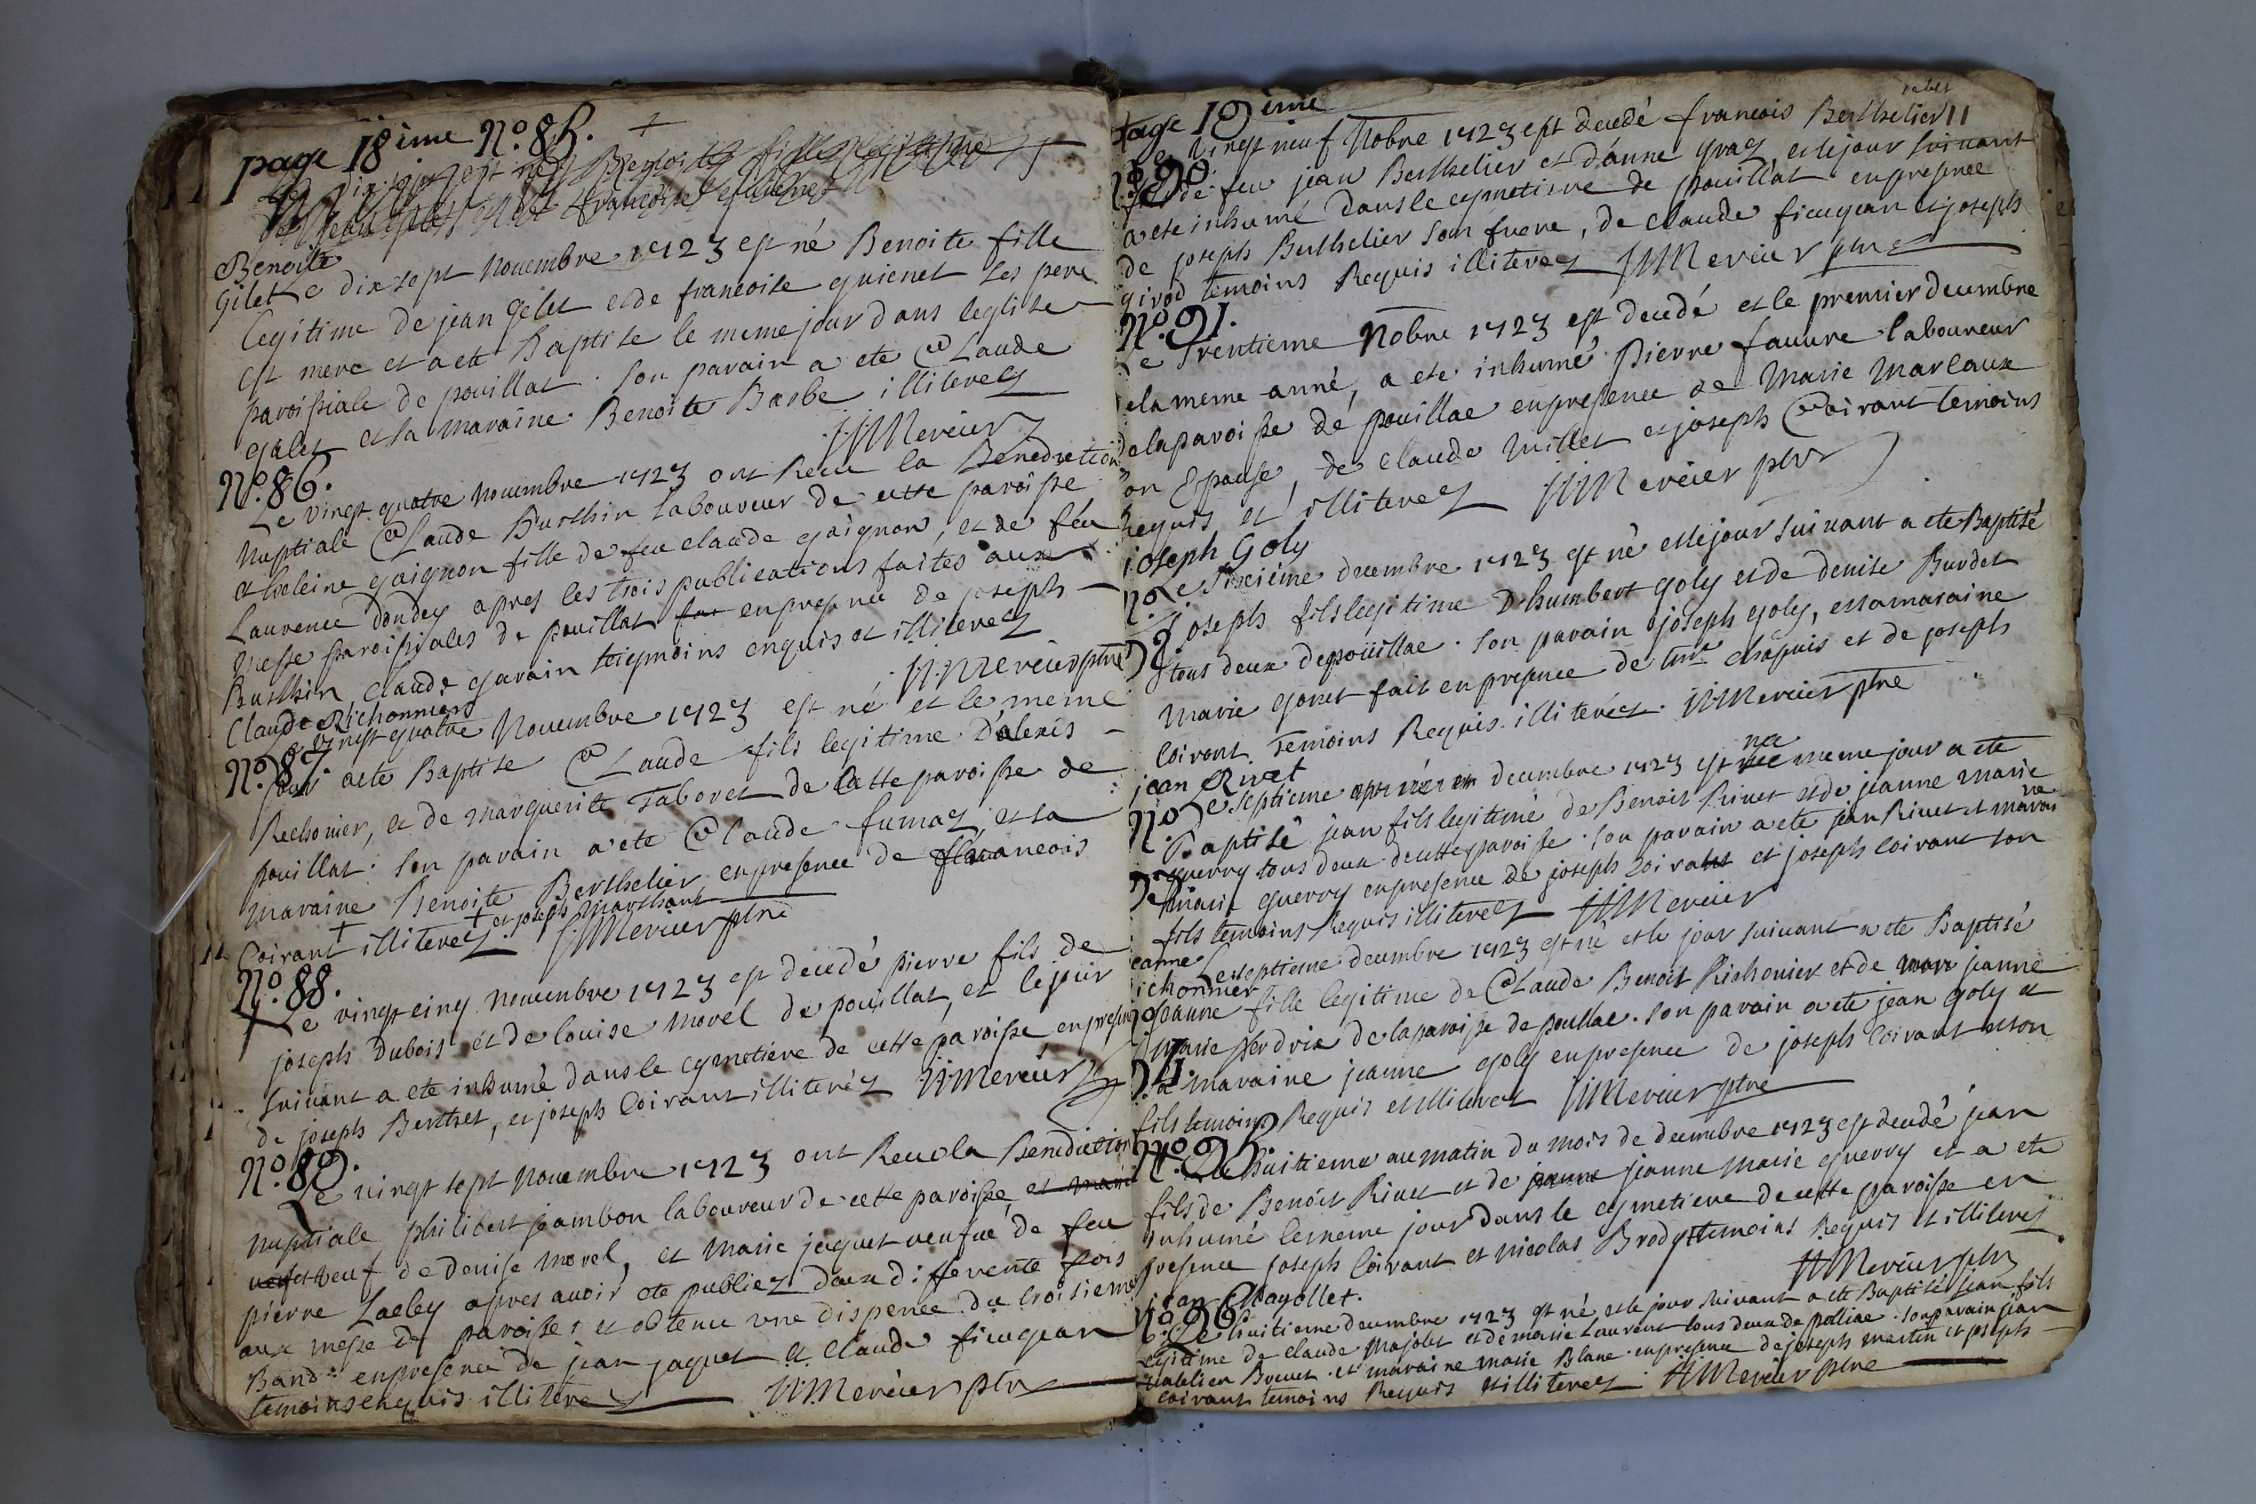 page 18ème N.° 85. +
Benoite
Gilet
Le dix sept novembre 1723 est né Benoite fille
legitime de jean Gilet et de francoise guienet ses pere
et mere et a ete Baptise le meme jour dans leglise
paroissiale de pouillat. son parain a ete Claude
galet et la maraine Benoite Barbe illiterez
JJMercier
N.° 86.
Le vingt quatre novembre 1723 ont Recu la Benediction
Nuptiale Claude Burthin laboureur de cette paroisse
et heleine gaignon fille de feu claude gaignon, et de feu
Laurence dondey apres les trois publications faites aux
messe paroissiales de pouillat enpresence de joseph
Burthin claude garain teigmoins enquis et illiterez
JJMercier ptre
Claude Richonnier
N.° 87.
Le vingt quatre Novembre 1723 est né et le meme
jour a ete Baptise Claude fils legitime D'alexis
Rechonier, et de marguerite Taboret de cette paroisse de
pouillat. son parain a ete Claude fumaz, et sa
maraine Benoite Berthelier enpresence de francois
Coirant + illiterez + et joseph marthant JJMercier ptre
N.° 88.
Le vingt cinq novembre 1723 est decedé pierre fils de
joseph Dubois et de louise morel de pouillat, et le jour
suivant a ete inhumé dans le cymetiere de cette paroisse enpresence
de joseph Berthet, et joseph Coirant illiteréz JJMercier
N.° 89.
Le vingt sept novembre 1723 ont Recu la Benediction
nuptiale philibert jambon laboureur de cette paroisse, et mari
veuf de Denise morel, et marie jaquet veufue de feu
pierre Laeley apres avoir ete publiez deux differente fois
aux messe de paroisse, et obtenu une dispence du troisieme
Band: enpresence de jean jaquet et claude ficugean
temoins enquis illiterez JJMercier ptre
page 19ème
11
N.° 90.
Le vingt neuf Nobre 1723 est decedé francois Berthelier
fils de feu jean Berthelier et d'anne graz, et le jour suivant
a ete inhumé dans le cymetiere de pouillat enpresence
de joseph Berthelier son frere, de claude ficugean et joseph
girod temoins Requis illiterez JJMercier ptre
N.° 91.
Le Trentieme Nobre 1723 est decedé et le premier decembre
de la meme anné, a ete inhumé Pierre fauure laboureur
de la paroisse de pouillac enpresence de Marie Mareaux
son Epouse, de claude millet et joseph Coirant temoins
Requis et illiterez JJMercier ptre
joseph Goly
N.° 92.
Le Sixiéme decembre 1723 est né et le jour suivant a ete Baptisé
joseph fils legitime D'humbert goly et de denise Burdet
tous deux de pouillac. son parain joseph goly, et sa maraine
marie goret fait enpresence de chapuis et de joseph
Coirant Temoins Requis illiteréz. JJMercier ptre
jean Rivet
N.° 93
Le septieme decembre 1723 est né meme jour a ete
Baptisé jean fils legitime de Benoit Rivet et de jeanne marie
guerry tous deux de cette paroisse. son parain a ete jean Rivet et maraine
marie guerry enpresence de joseph Coirant et joseph Coirant son
fils temoins Requis illiterez JJMercier
jeanne
Richonnier
N.° 94.
Le septieme decembre 1723 est né et le jour suivant a ete Baptisé
jeanne fille legitime de Claude Benoit Richonier et de jeanne
marie perdrix de la paroisse de poullac. son parain a ete jean goly et
sa maraine jeanne goly enpresence de joseph Coirant et son
fils temoins Requis et illiterez JJMercier ptre
N.° 95.
Le huitieme au matin du mois de decembre 1723 est decedé jean
fils de Benoit Rivet et de jeanne marie guerry et a ete
inhumé le meme jour dans le cymetiere de cette paroisse en
presence joseph Coirant et nicolas Brody temoins Requis et illiterez
JJMercier ptre
jean Mayollet.
N.° 96
Le huitieme decembre 1723 est né et le jour suivant a ete Baptisé jean fils
legitime de claude Majolet et de marie Laurent tous deux de polliac. son parain jean
Brevet. et maraine marie Blanc. enpresence de joseph martin et joseph
Coirant temoins Requis et illiterez. JJMercier ptre